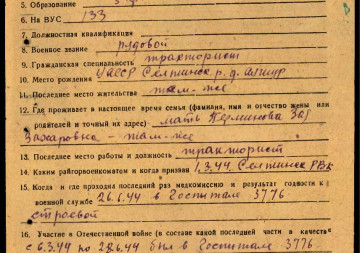 5. Образование
6. На ВУС 133
7. Должностная квалификация
8. Военное звание рядовой
9. Гражданская специальность тракторист
10. Место рождения УАССР Селтинск. р. д.
11. Последнее место жительства там-же
12. Где проживает в настоящее время семья (фамилия, имя и отчество жены или
родителей и точный их адрес) мать
Захаровна - там-же
13. Последнее место работы и должность тракторист
14. Каким райгорвоенкоматом и когда призван 1.3.44. Селтинск РВК
15. Когда и где проходил последний раз медкомиссию и результат годности к
военной службе 26.6.44 в Госпитале 3776
строевой
16. Участие в Отечественной войне (в составе какой последней части в качестве
с 6.3.44 по 28.6.44 был в Госпитале 3776